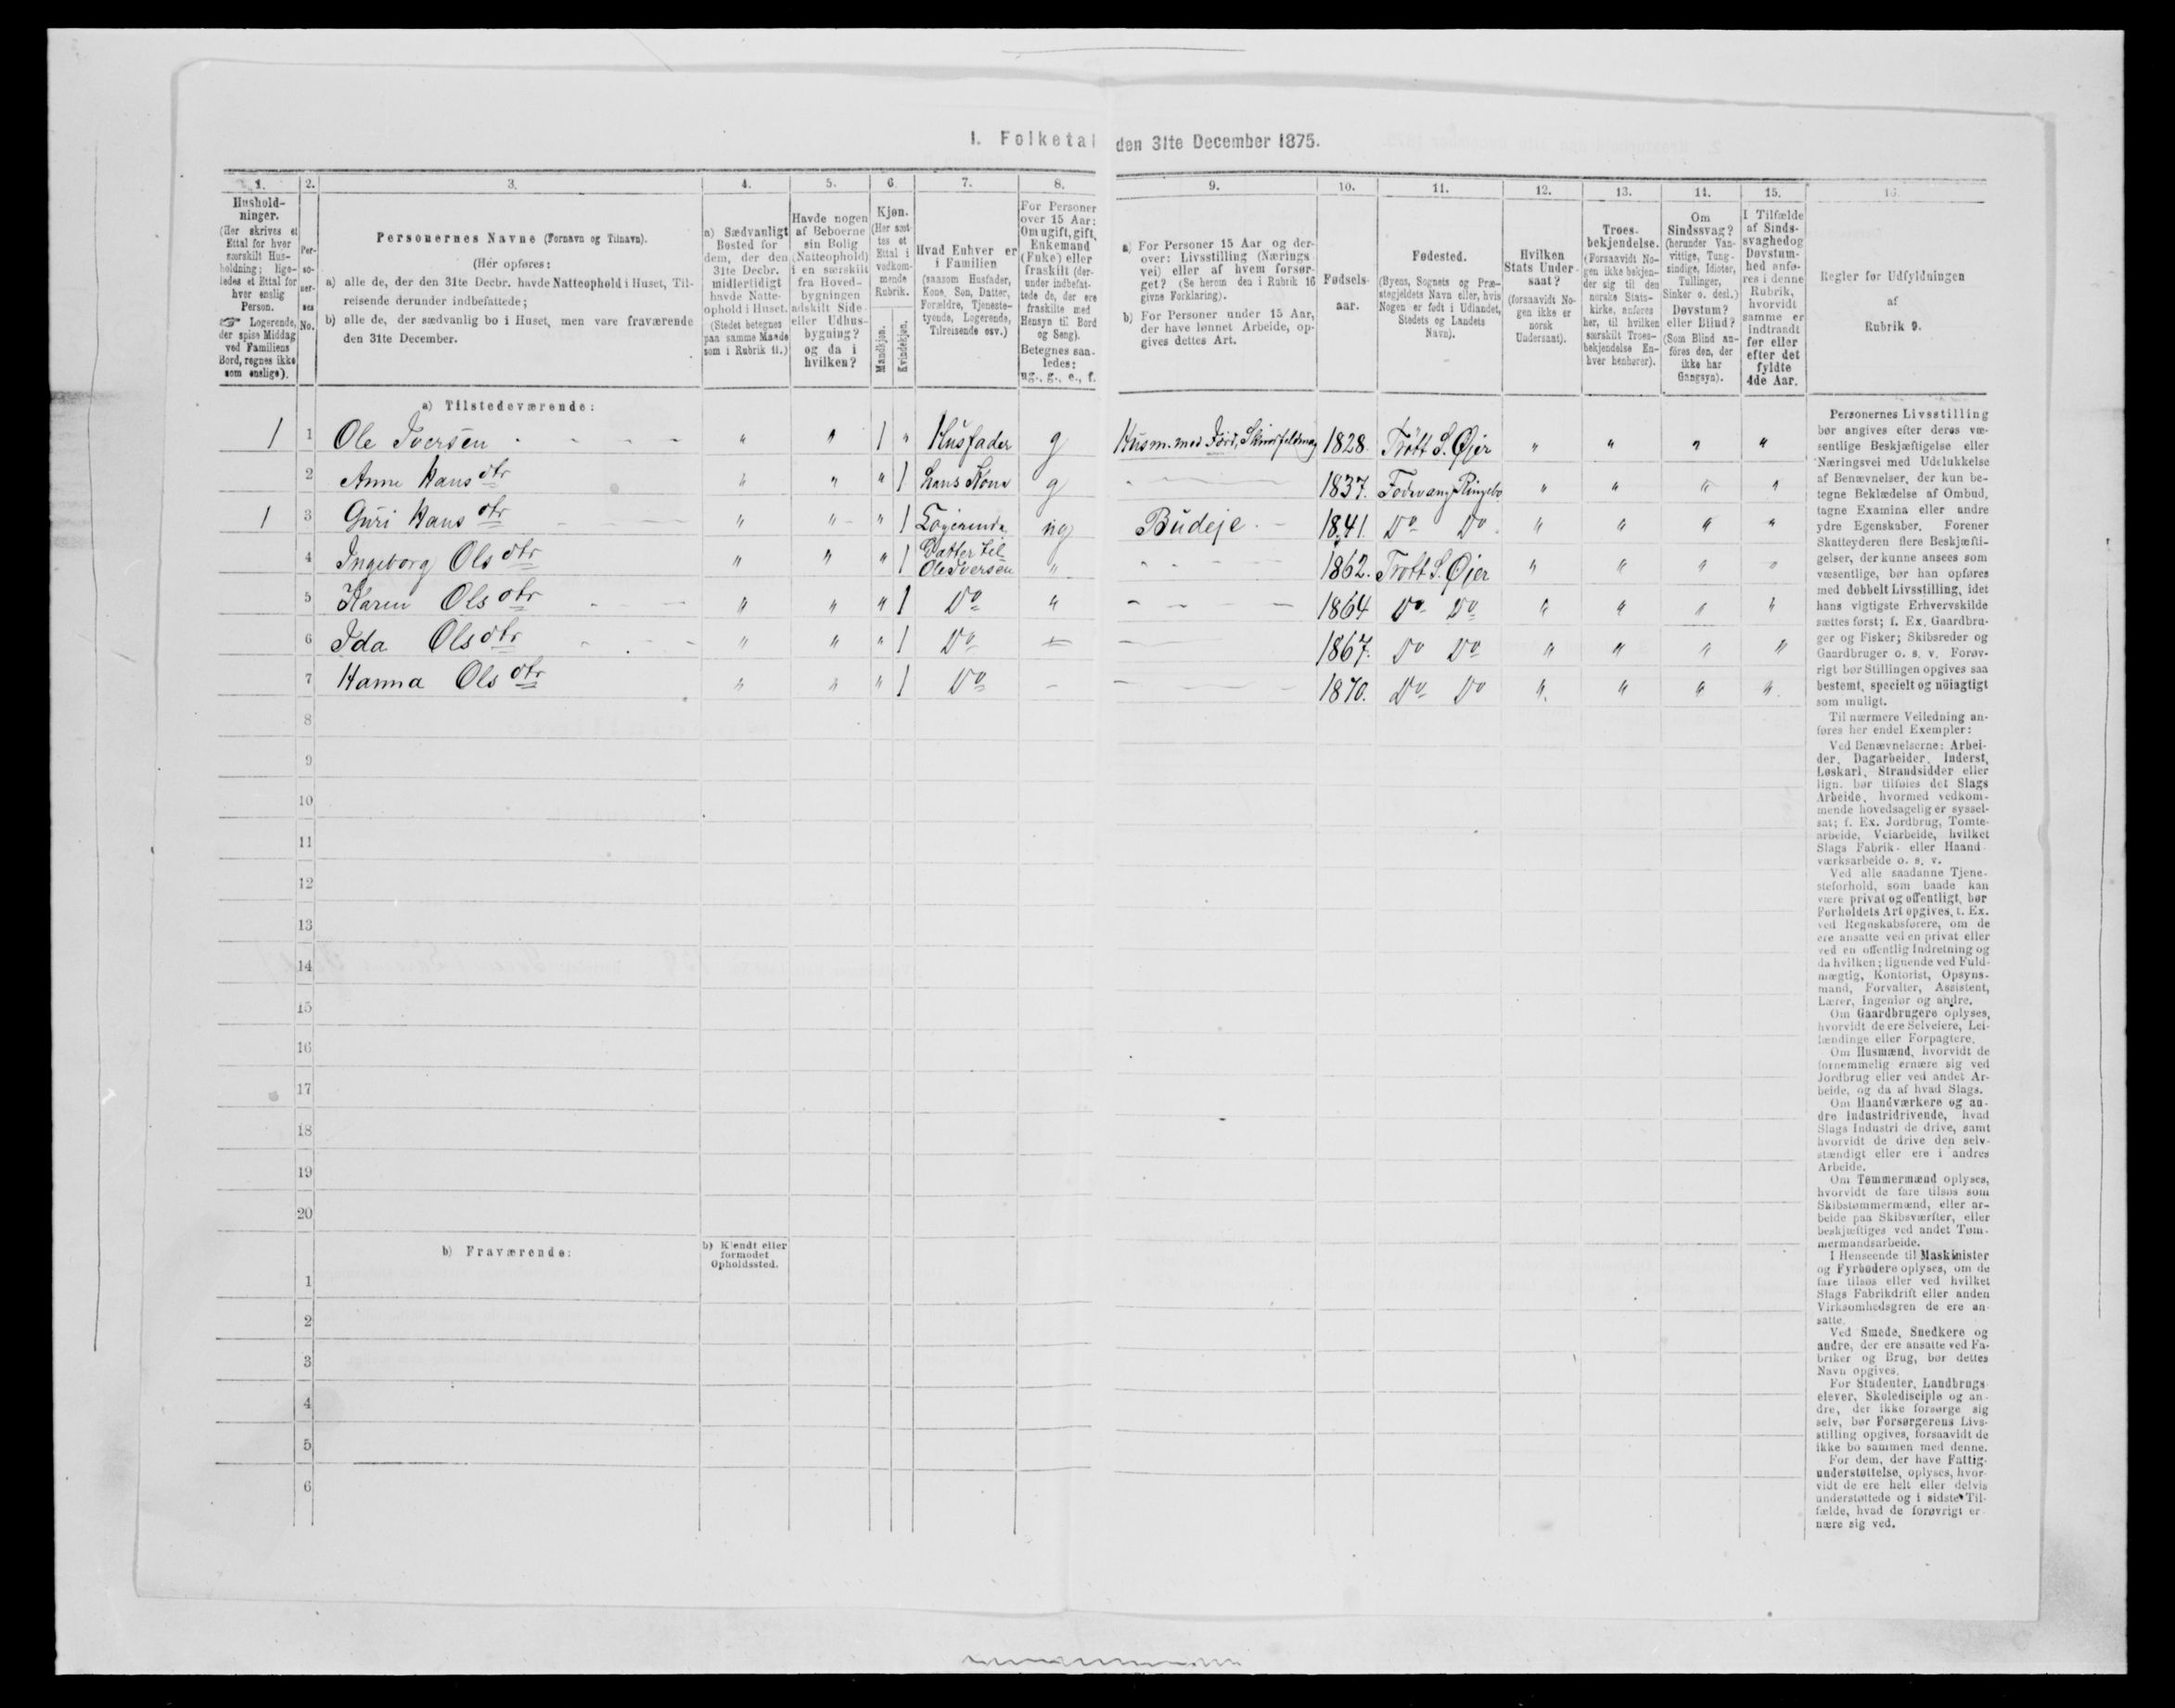 1. Folketal den 31te December 1875.
1. 2. 3. 4. 5. 6. 7. 8. 9. 10. 11. 12. 13. 14. 15. 16.
Hushold-
ninger.
(Her skrives et
Ettal for hver
særskilt Hus-
holdning; lige-
ledes et Ettal for
hver enslig
Person.
☞ Logerende,
der spise Middag
ved Familiens
Bord, regnes ikke
som enslige).
Per-
so-
ner-
nes
No.
Personernes Navne (Fornavn og Tilnavn).
(Her opføres:
a) alle de, der den 31te Decbr. havde Natteophold i Huset, Til-
reisende derunder indbefattede;
b) alle de, der sædvanlig bo i Huset, men vare fraværende
den 31te December.
a) Sædvanligt
Bosted for
dem, der den
31te Decbr.
midlertidigt
havde Natte-
ophold i Huset.
(Stedet betegnes
paa samme Maade
som i Rubrik 11.)
Havde nogen
af Beboerne
sin Bolig
(Natteophold)
i en særskilt
fra Hoved-
bygningen
adskilt Side-
eller Udhus-
bygning?
og da i
hvilken?
Kjøn.
(Her sæt-
tes et
Ettal i
vedkom-
mende
Rubrik.
Mandkjøn.
Kvindekjøn.
Hvad Enhver er
i Familien
(saasom Husfader,
Kone, Søn, Datter,
Forældre, Tjeneste-
tyende, Logerende,
Tilreisende osv.)
For Personer
over 15 Aar:
Om ugift, gift,
Enkemand
(Enke) eller
fraskilt (der-
under indbefat-
tede de, der ere
fraskilte med
Hensyn til Bord
og Seng).
Betegnes saa-
ledes:
ug., g., e., f.
a) For Personer 15 Aar og der-
over: Livsstilling (Nærings-
vei) eller af hvem forsør-
get? (Se herom den i Rubrik 16
givne Forklaring).
b) For Personer under 15 Aar,
der have lønnet Arbeide, op-
gives dettes Art.
Fødsels-
aar.
Fødested.
(Byens, Sognets og Præ-
stegjeldets Navn eller, hvis
Nogen er født i Udlandet,
Stedets og Landets
Navn).
Hvilken
Stats Under-
saat?
(forsaavidt No-
gen ikke er
norsk
Undersaat).
Troes-
bekjendelse.
(Forsaavidt No-
gen ikke bekjen-
der sig til den
norske Stats-
kirke, anføres
her, til hvilken
særskilt Troes-
bekjendelse En-
hver henhører).
Om
Sindssvag?
(herunder Van-
vittige, Tung-
sindige, Idioter,
Tullinger,
Sinker o. desl.)
Døvstum?
eller Blind?
(Som Blind an-
føres den, der
ikke har
Gangsyn).
I Tilfælde
af Sinds-
svaghed og
Døvstum-
hed anfø-
res i denne
Rubrik,
hvorvidt
samme er
indtraadt
før eller
efter det
fyldte
4de Aar.
Regler for Udfyldningen
af
Rubrik 9.
a) Tilstedeværende:
1 1 Ole Iversen - - - - " " 1 " Husfader g Husm. med Jord, 1828. Trött S. Øjer " " " "
2 Anne Hansdtr " " " 1 Hans Kone g - 1837. Fodvang Ringebo " " " "
1 3 Guri Hansdtr - - - " " - " 1 Logerende ug Budeje - 1841. Do Do " " " "
4 Ingeborg Olsdtr " " " 1 Datter til Ole Iversen " - 1862. Trött S. Øjer " " " "
5 Karen Olsdtr - - - " " " 1 Do " - 1864 Do Do " " " "
6 Ida Olsdtr - - - " " " 1 Do - - 1867. Do Do " " " "
7 Hanna Olsdtr " " " 1 Do - - 1870. Do Do " " " "
8
9
10
11
12
13
14
15
16
17
18
19
20
b) Fraværende:
b) Kjendt eller
formodet
Opholdssted.
1
2
3
4
5
6
Personernes Livsstilling
bør angives efter deres væ-
sentlige Beskjæftigelse eller
Næringsvei med Udelukkelse
af Benævnelser, der kun be-
tegne Beklædelse af Ombud,
tagne Examina eller andre
ydre Egenskaber. Forener
Skatteyderen flere Beskjæfti-
gelser, der kunne ansees som
væsentlige, bør han opføres
med dobbelt Livsstilling, idet
hans vigtigste Erhvervskilde
sættes først; f. Ex. Gaardbru-
ger og Fisker; Skibsreder og
Gaardbruger o. s. v. Forøv-
rigt bør Stillingen opgives saa
bestemt, specielt og nöiagtigt
som muligt.
Til nærmere Veiledning an-
føres her endel Exempler:
Ved Benævnelserne: Arbei-
der, Dagarbeider, Inderst,
Løskarl, Strandsidder eller
lign. bør tilføies det Slags
Arbeide, hvormed vedkom-
mende hovedsagelig er syssel-
sat; f. Ex. Jordbrug, Tomte-
arbeide, Veiarbeide, hvilket
Slags Fabrik- eller Haand-
værksarbeide o. s. v.
Ved alle saadanne Tjene-
steforhold, som baade kan
være privat og offentligt, bør
Forholdets Art opgives, t. Ex.
ved Regnskabsførere, om de
ere ansatte ved en privat eller
ved en offentlig Indretning og
da hvilken; lignende ved Fuld-
mægtig, Kontorist, Opsyns-
mand, Forvalter, Assistent,
Lærer, Ingeniør og andre.
Om Gaardbrugere oplyses,
hvorvidt de ere Selveiere, Lei-
lændinge eller Forpagtere.
Om Husmænd, hvorvidt de
fornemmelig ernære sig ved
Jordbrug eller ved andet Ar-
beide, og da af hvad Slags.
Om Haandværkere og an-
dre Industridrivende, hvad
Slags Industri de drive, samt
hvorvidt de drive den selv-
stændigt eller ere i andres
Arbeide.
Om Tømmermænd oplyses,
hvorvidt de fare tilsøs som
Skibstømmermænd, eller ar-
beide paa Skibsværfter, eller
beskjæftiges ved andet Tøm-
mermandsarbeide.
I Henseende til Maskinister
og Fyrbødere oplyses, om de
fare tilsøs eller ved hvilket
Slags Fabrikdrift eller anden
Virksomhedsgren de ere an-
satte.
Ved Smede, Snedkere og
andre, der ere ansatte ved Fa-
briker og Brug, bør dettes
Navn opgives.
For Studenter, Landbrugs-
elever, Skoledisciple og an-
dre, der ikke forsørge sig
selv, bør Forsørgerens Livs-
stilling opgives, forsaavidt de
ikke bo sammen med denne.
For dem, der have Fattig-
understøttelse, oplyses, hvor-
vidt de ere helt eller delvis
understøttede og i sidste Til-
fælde, hvad de forøvrigt er-
nære sig ved.